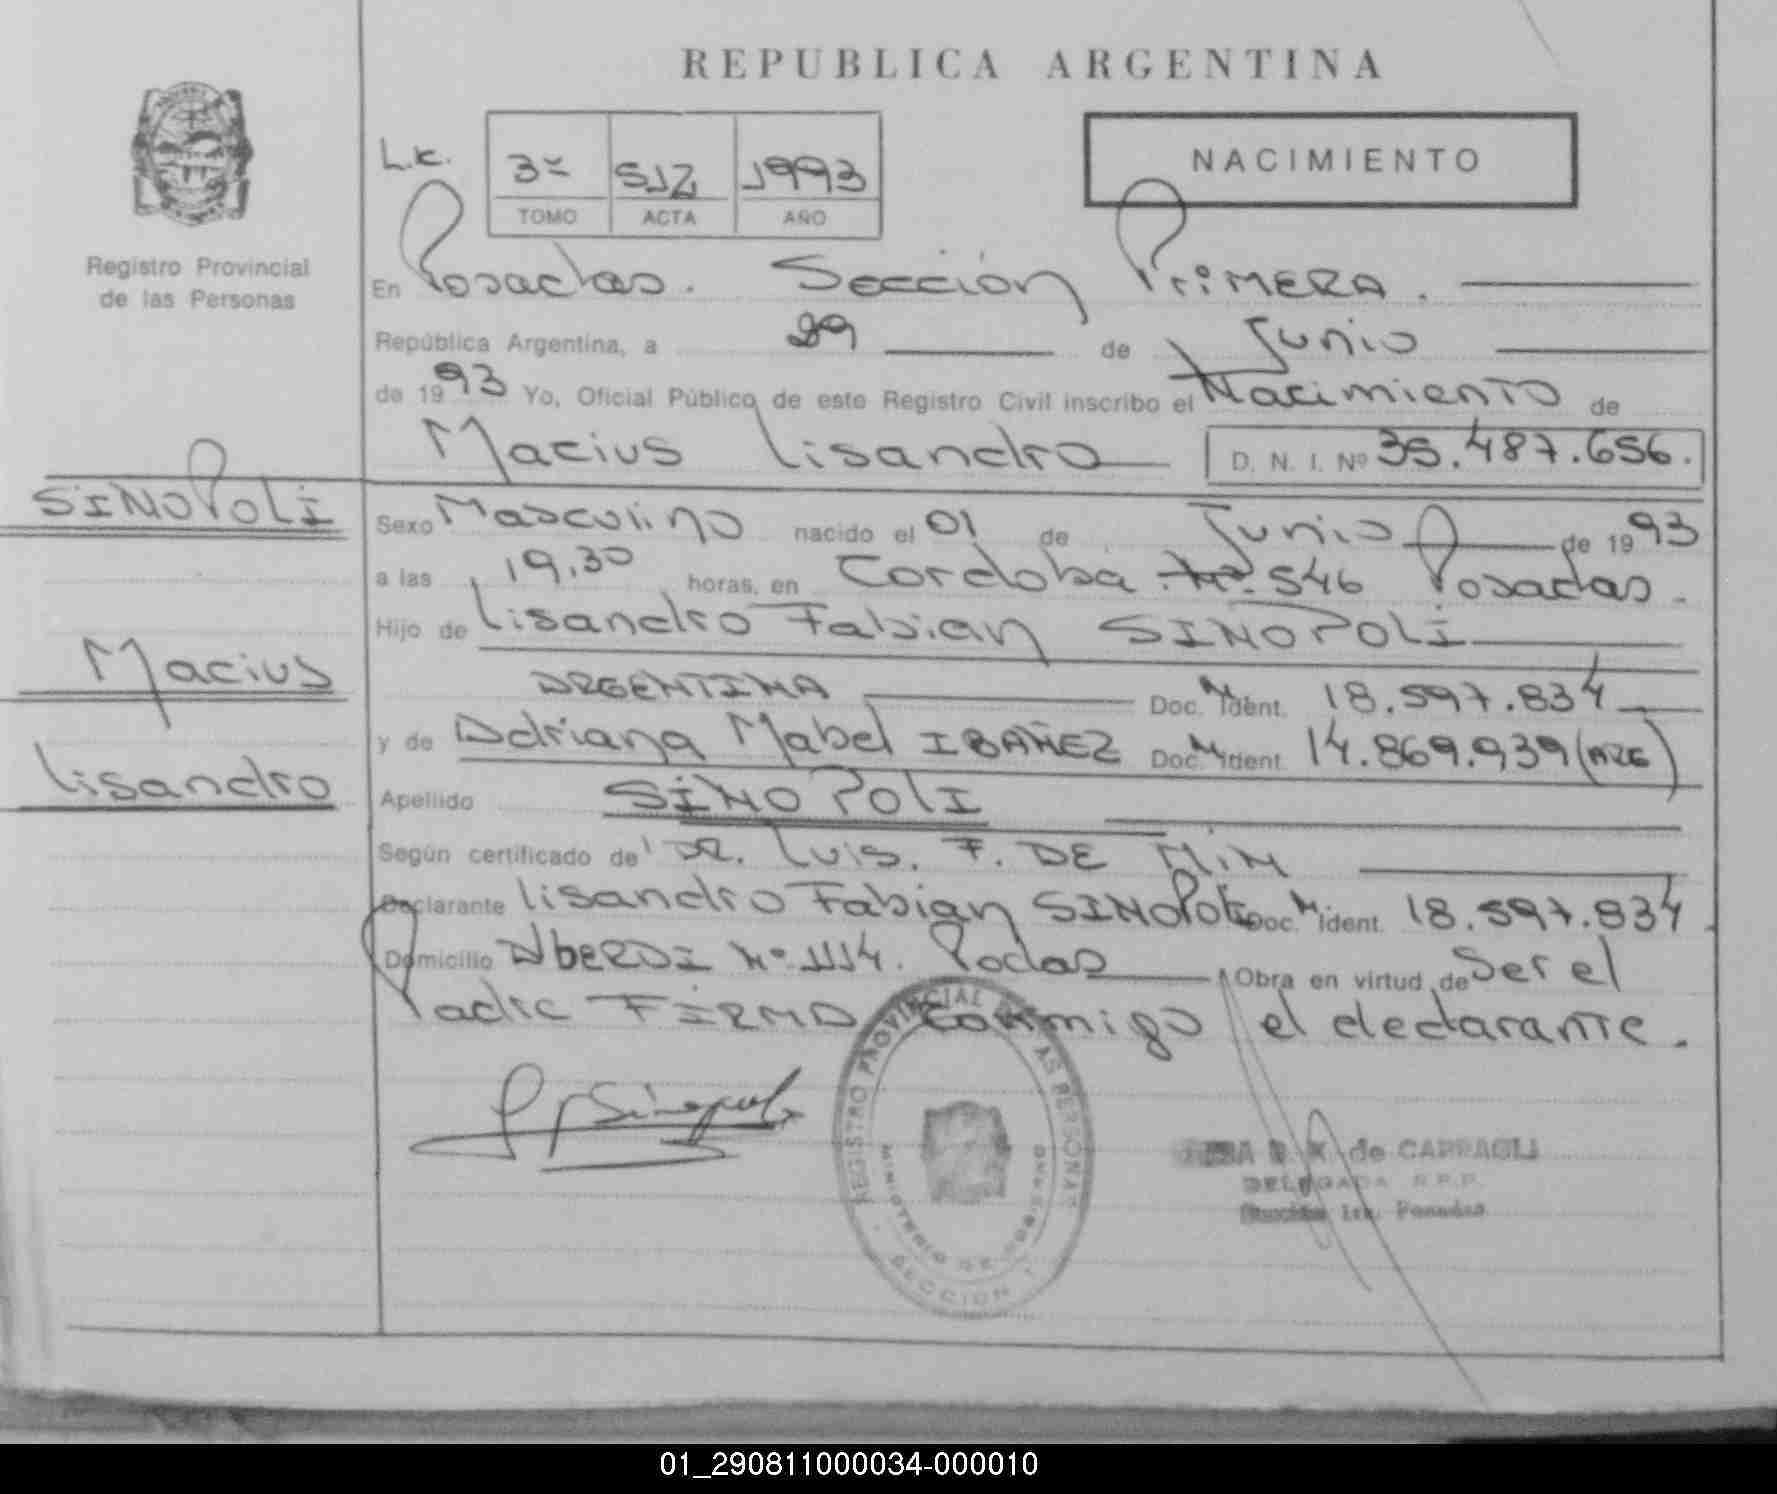 REPUBLICA ARGENTINA
NACIMIENTO
L.C.
3º 512 1993
TOMO ACTA AÑO
Registro Provincial
de las Personas
En Posadas. Sección PriMERA.
República Argentina, a 29 de Junio
de 1993 Yo, Oficial Público de este Registro Civil inscribo el Nacimiento de
Macius Lisandro D. N. I. Nº 35.487.656.
SINOPOLI
Macius
Lisandro
Sexo Masculino nacido el 01 de Junio de 1993
a las 19,30 horas, en Cordoba Nº 546 Posadas.
Hijo de Lisandro Fabian SINOPOLI
ARGENTINA Doc. M. Ident. 18.597.834
y de Adriana Mabel IBAÑEZ Doc. M. Ident. 14.869.939 (ARG)
Apellido SINOPOLI
Según certificado de DR. Luis. F. DE MIN
Declarante Lisandro Fabian SINOPOLI Doc. M. ident. 18.597.834
Domicilio AlbERDI Nº 1114. Podas Obra en virtud de Ser el
Padre FIRMA conmigo el declarante.
REGISTRO PROVINCIAL DE LAS PERSONAS
MINISTERIO DE GOBIERNO
SECCION 1
de CAPRAGLI
DELEGADA R.P.P.
Sección 1ra. Posadas
01_290811000034-000010